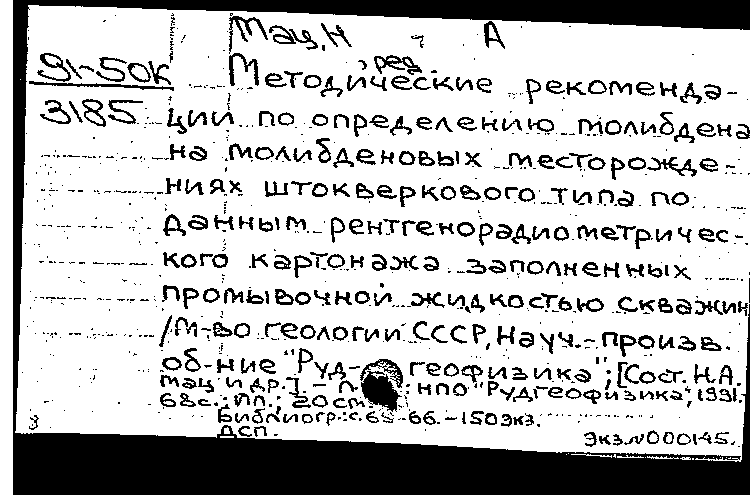 Мац, Н А
, ред.
91-50К Методические рекоменда-
3185 ции по определению молибдена
на молибденовых месторожде-
ниях штокверкового типа по
данным рентгенорадиометричес-
кого картонажа заполненных
промывочной жидкостью скважин
/М-во геологии СССР, Науч.-произв.
об-ние "Рудгеофизика"; [Сост. Н.А.
Мац и др.]. - Л. : НПО "Рудгеофизика", 1991.-
68с.: ил.; 20см
Библиогр.: с. 65-66. - 150экз.
ДСП.
Экз.N000145.
3